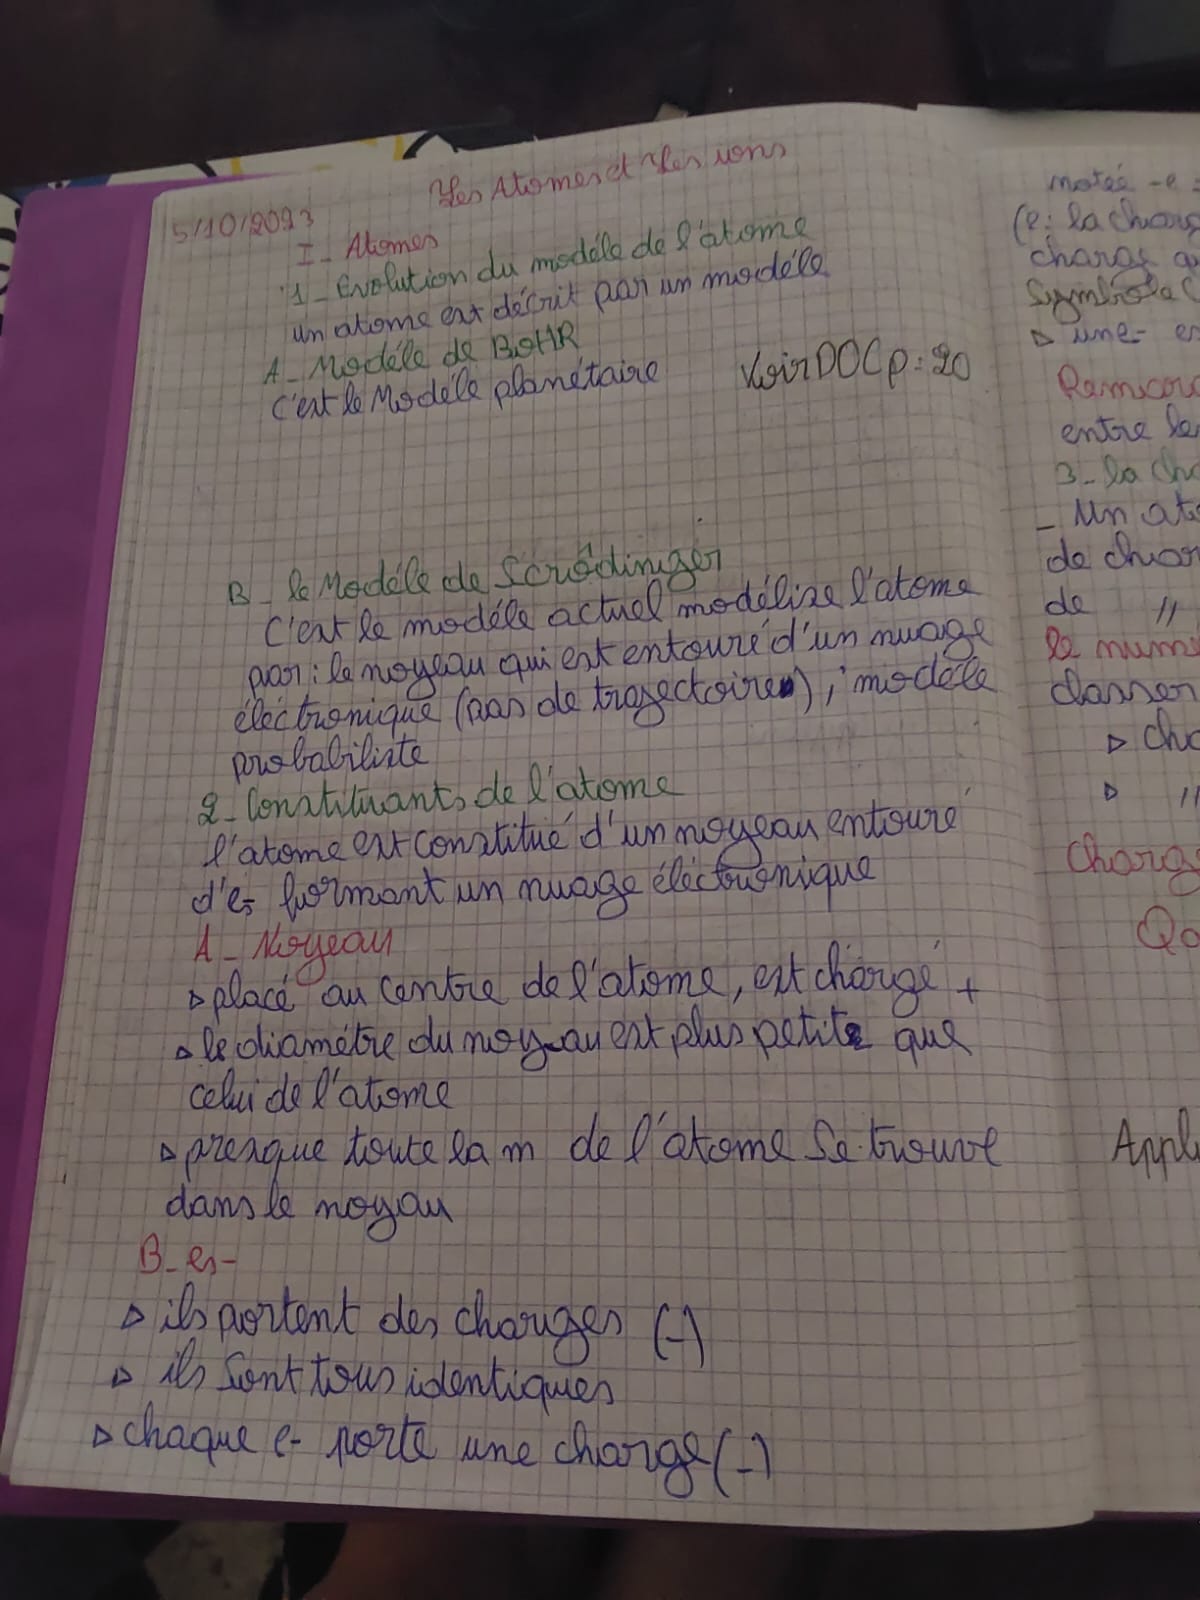 Les Atomes et Les ions
5/10/2023
I- Atomes
1- Evolution du modéle de l'atome
un atome est décrit par un modéle
A- Modéle de BOHR
C'est le Modéle planétaire
Voir DOC p: 20
B- le Modéle de Scrôdinger
C'est le modéle actuel modélise l'atome
par: le noyeau qui est entouré d'un nuage
éléctronique (pas de trajectoires), modéle
probabiliste
2- Constituants de l'atome
l'atome est constitué d'un noyeau entouré
d'e- formant un nuage éléctronique
A- Noyeau
▹ placé au centre de l'atome, est chargé +
▹ le diamétre du noyeau est plus petit que
celui de l'atome
▹ presque toute la m de l'atome se trouve
dans le noyau
B- es-
▹ ils portent des charges (-)
▹ ils sont tous identiques
▹ chaque e- porte une charge (-)
notée -e =
(e: la
charge
Symbole
▹ une
entre
3- la
- Un
de
de //
le
classer
▹
▹ //